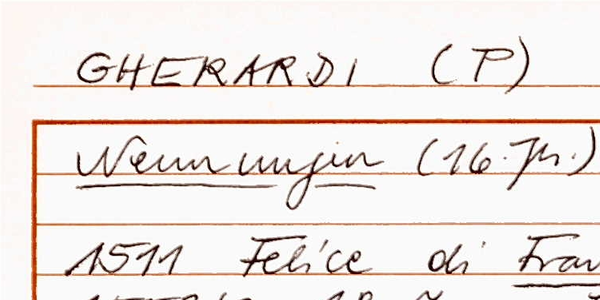 GHERARDI (P)
Nennungen (16. Jh.)
1511 Felice di